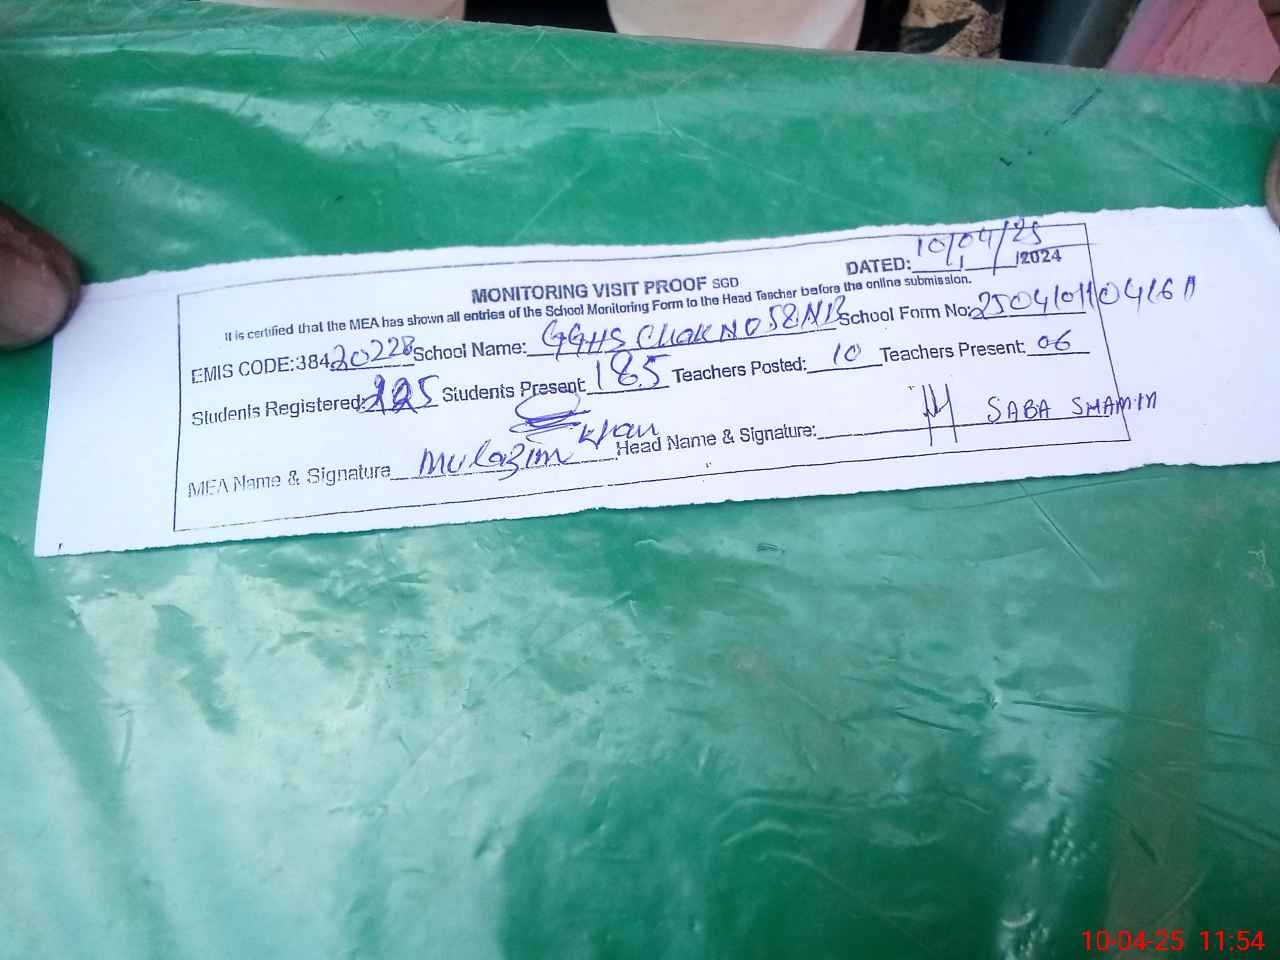 DATED: 10/04/25 /2024
MONITORING VISIT PROOF SGD
It is certified that the MEA has shown all entries of the School Monitoring Form to the Head Teacher before the online submission.
EMIS CODE:38420228 School Name: GGHS Chak NO 58 NB School Form No:
Students Registered: Students Present: 185 Teachers Posted: 10 Teachers Present: 06
MEA Name & Signature Mulazim Khan Head Name & Signature: SABA SHAMIM
10-04-25 11:54